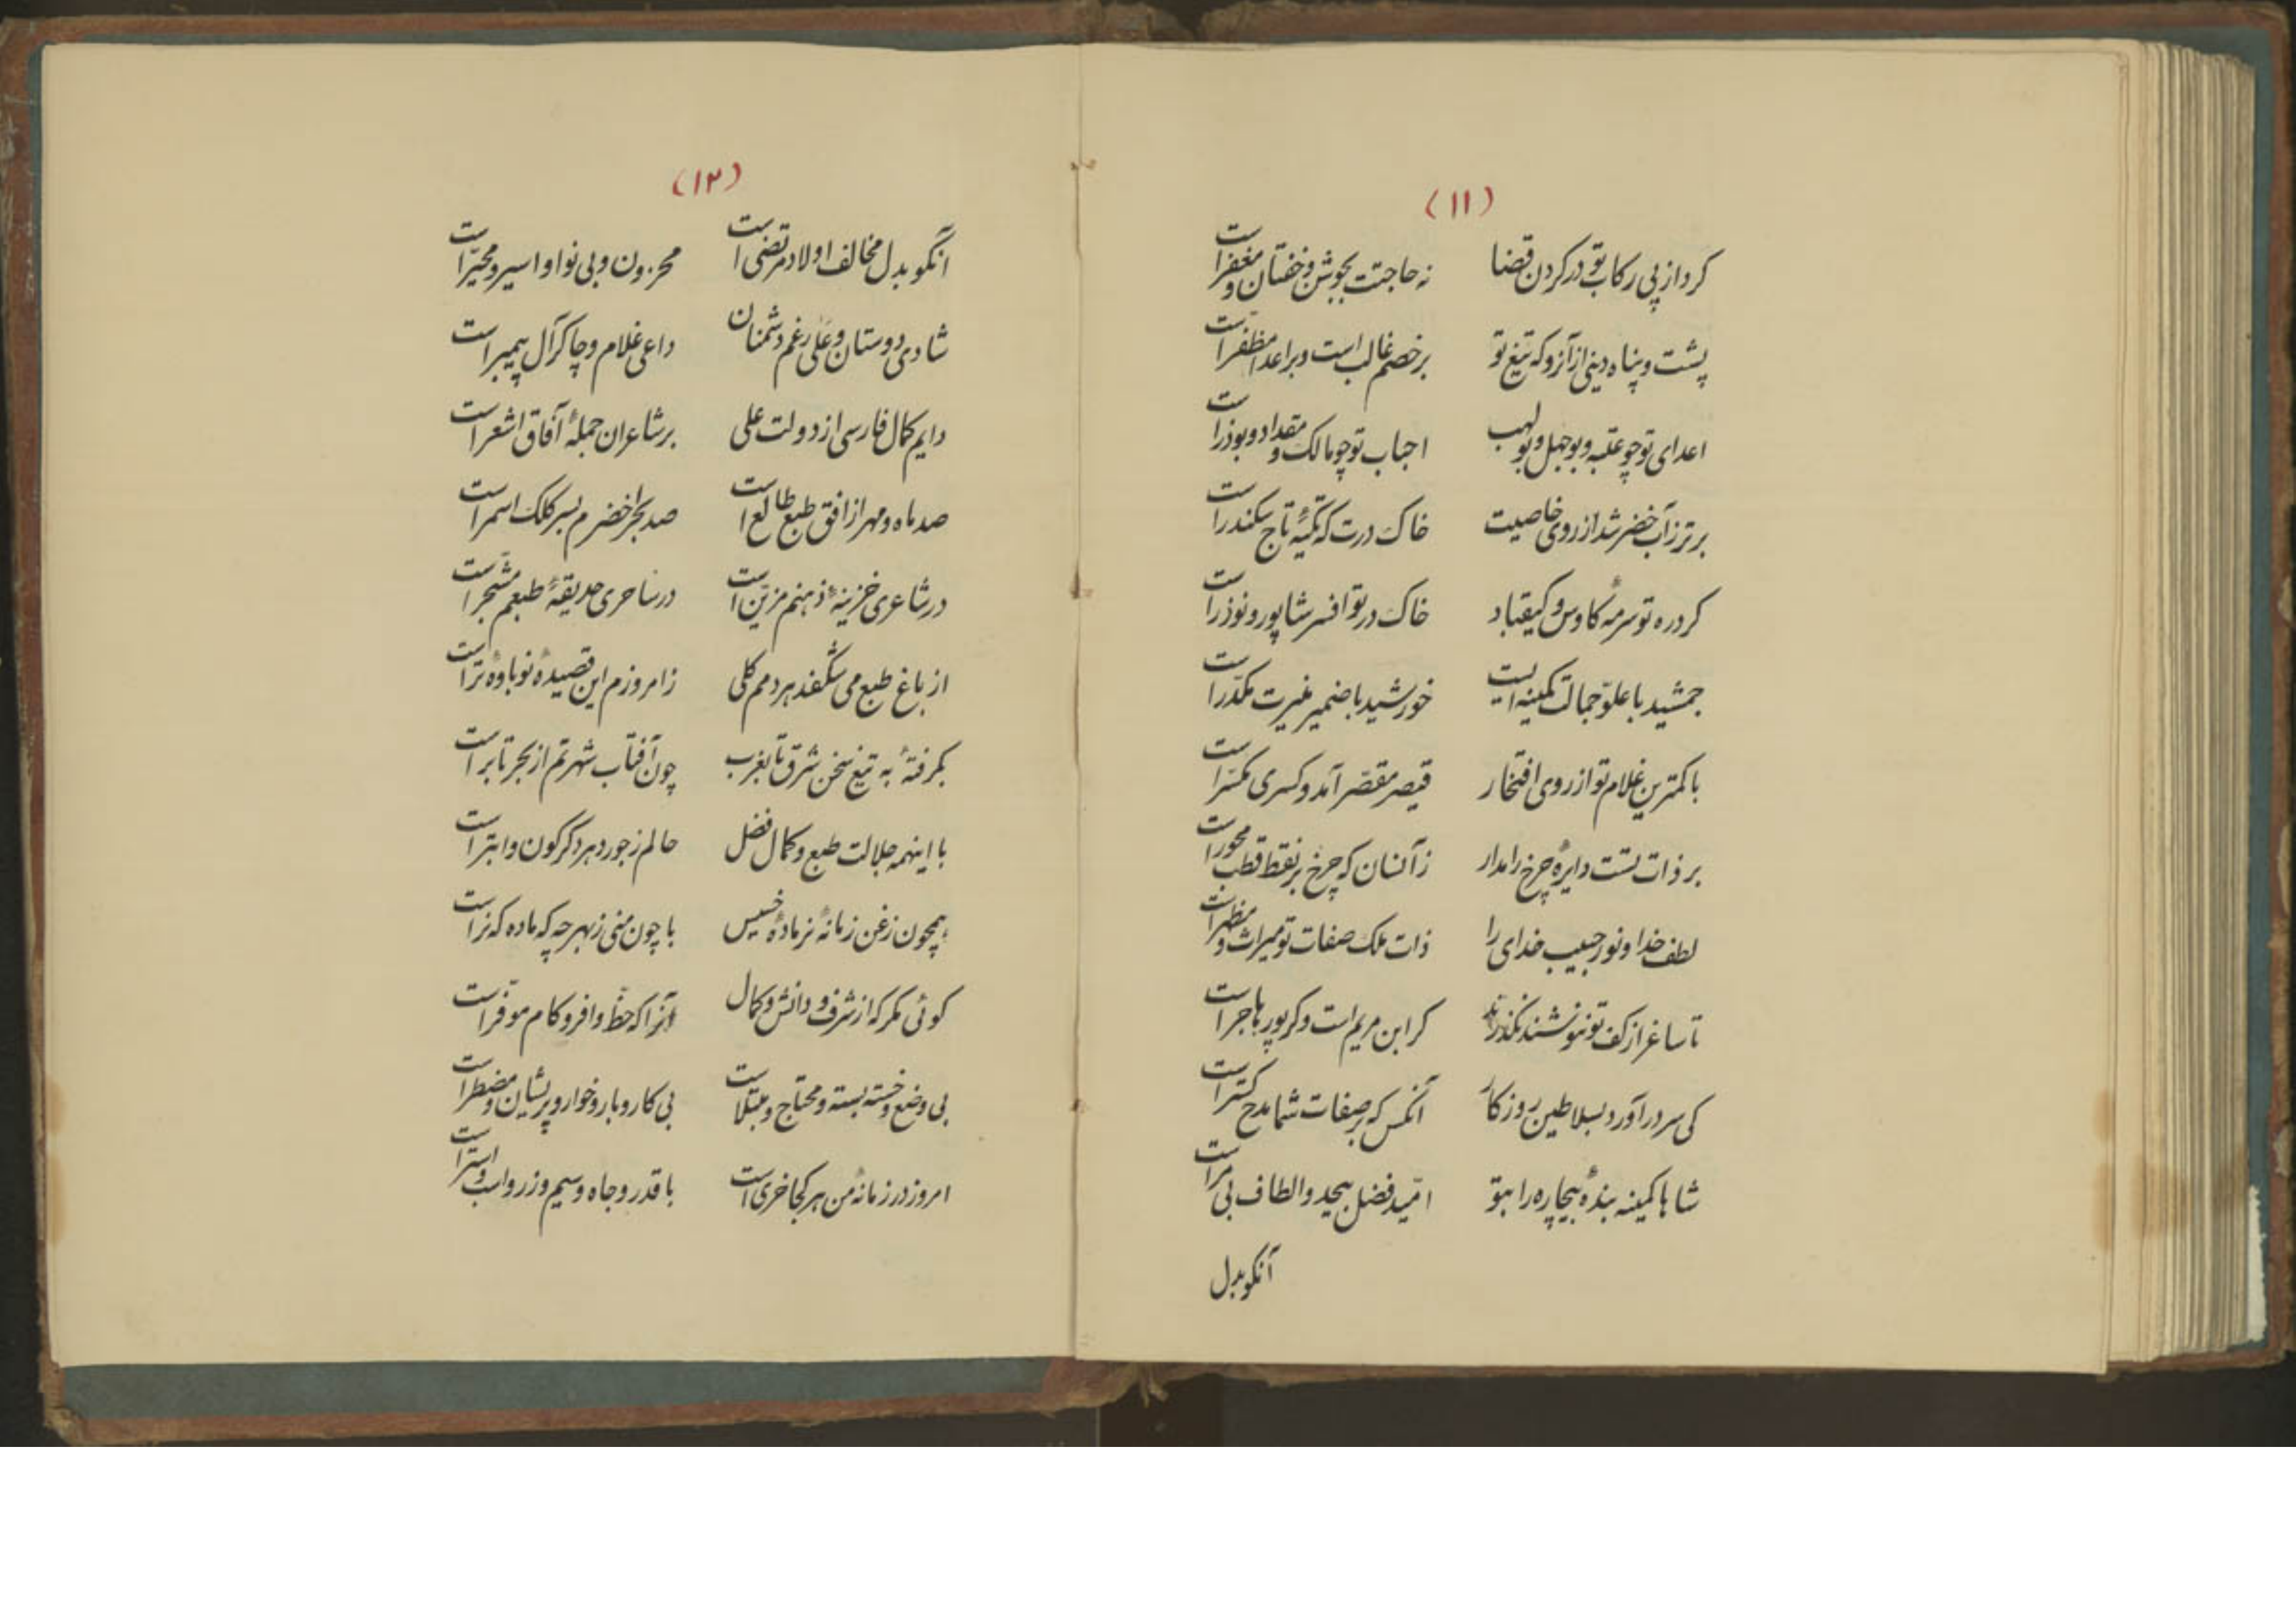 (۱۱)
کرد از پی رکاب تو در کردن قضا نه حاجتت بجوشن و خفتان و مغفر است
پشت و پناه دینی از آنرو که تیغ تو بر خصم غالب است و بر اعدا مظفر است
اعدای تو چو عتبه و بوجهل و بولهب احباب تو چو مالک و مقداد و بوذر است
برتر ز آب خضر شد از روی خاصیت خاک درت که تکیهٔ تاج سکندر است
کرد ره تو سرمهٔ کاوس و کیقباد خاک در تو افسر شاپور و نوذر است
جمشید با علوّ جمالت کمینه ایست خورشید با ضمیر منیرت مکدّر است
با کمترین غلام تو از روی افتخار قیصر مقصّر آمد و کسری مکسّر است
بر ذات تست دایرهٔ چرخ را مدار ز آنسان که چرخ بر نقط قطب محور است
لطف خدا و نور حبیب خدای را ذات ملک صفات تو میراث و مظهر است
تا ساغر از کف تو ننوشند نگذرند کر ابن مریم است و کر پور هاجر است
کی سر در آورد بسلاطین روزکار آنکس که بر صفات شما مدح کستر است
شاها کمینه بندهٔ بیچاره را بتو امّید فضل بیحد و الطاف بی مر است
آنکو بدل
(۱۲)
آنکو بدل مخالف اولاد مرتضی است محزون و بی نوا و اسیر و محیّر است
شادی دوستان و علی رغم دشمنان داعی غلام و چاکر آل پیمبر است
دایم کمال فارسی از دولت علی بر شاعران جملهٔ آفاق اشعر است
صد ماه و مهر از افق طبع طالع است صد بحر اخضرم بسر کلک اسمر است
در شاعری خزینهٔ ذهنم مزیّن است در ساحری حدیقهٔ طبعم مشجّر است
از باغ طبع می شکفند هر دمم کلی ز امروزم این قصیدهٔ نوباوهٔ تر است
بکرفتهٔ به تیغ سخن شرق تا بغرب چون آفتاب شهرتم از بحر تا بر است
با اینهمه جلالت طبع و کمال فضل حالم ز جور دهر دکرکون و ابتر است
همچون زغن زمانهٔ نر مادهٔ خسیس با چون منی ز بهر چه که ماده که نر است
کوئی مکر که از شرف و دانش و کمال آنرا که حظّ وافر و کام موفّر است
بی وضع و خسته بسته و محتاج و مبتلاست بی کار و بار و خوار و پریشان و مضطر است
امروز در زمانهٔ من هر کجا خری است با قدر و جاه و سیم و زر و اسب و استر است